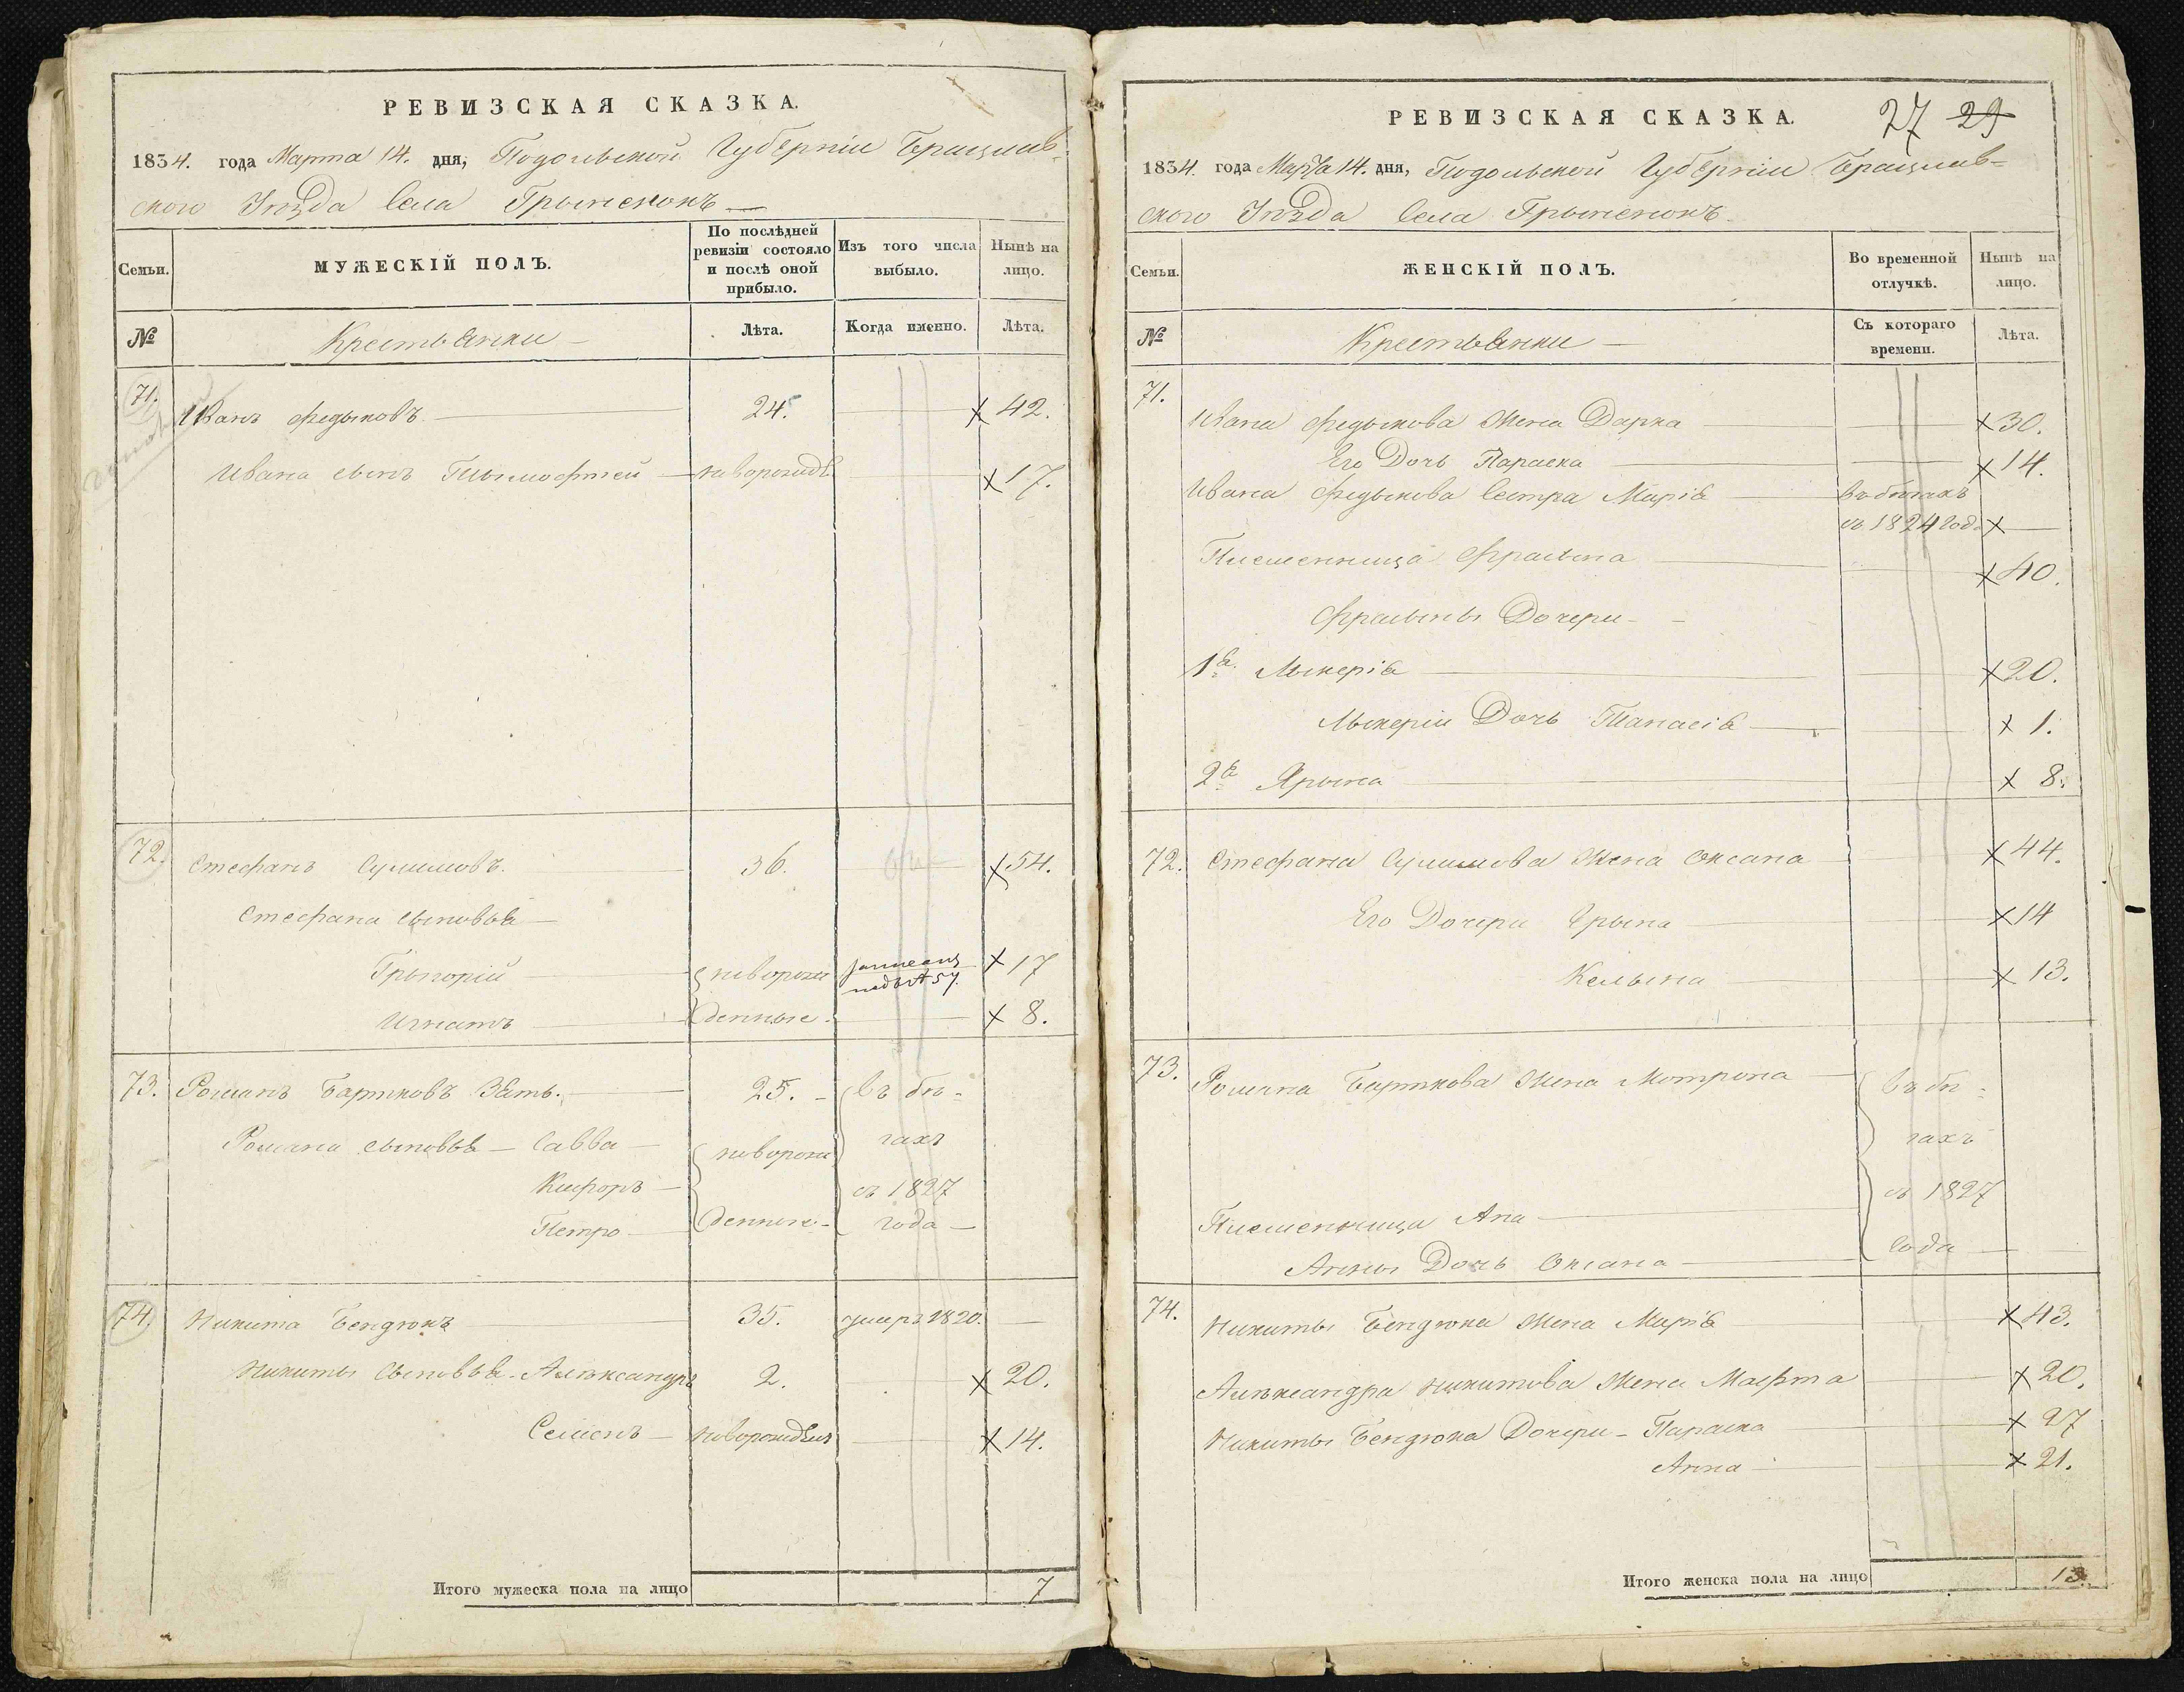 РЕВИЗСКАЯ СКАЗКА.
1834. года Марта 14. дня, Подольской Губерніи Брацлав-
ского Уѣзда Села
Семьи.
МУЖЕСКІЙ ПОЛЪ.
По послѣдней ревизіи состояло и послѣ оной прибыло.
Изъ того числа выбыло.
Нынѣ на лицо.
№
Крестьянки
Лѣта.
Когда именно.
Лѣта.
71.
Иванъ Федьковъ 24. х 42.
Ивана сынъ Тымофтей новорожд х 17.
72. Стефанъ Сулимовъ. 36. х 54.
Стефана сыновья
Грыгорій новорож х 17
Игнатъ денные х 8.
73. Романъ Бартковъ Зять. 25. въ бѣ-
Романа сыновья Савва новорож гахъ
Кифоръ съ 1827
Петро денные года
74. Никита Бендюкъ 35. умеръ 1820.
Никиты сыновья Алѣксандръ 2. х 20.
Семенъ новорожден х 14.
Итого мужеска пола на лицо 7
27 29
РЕВИЗСКАЯ СКАЗКА.
1834. года Марта 14. дня, Подольской Губерніи Брацлав-
ского Уѣзда Села
Семьи.
ЖЕНСКІЙ ПОЛЪ.
Во временной отлучкѣ.
Нынѣ на лицо.
№
Крестьянки
Съ котораго времени.
Лѣта.
71.
Ивана Федькова жена Дарка х 30.
Его Дочь Параска х 14.
Ивана Федькова Сестра Марія въ бѣгахъ
съ 1824 года х
Племенница Фрасына х 40.
Фрасыны Дочери
1я Лыкерія х 20.
Лыкеріи Дочь Танасія х 1.
2я Ярына х 8.
72. Стефана Сулимова жена Оксана х 44.
Его Дочери Ярына х 14
Келына х 13.
73. Романа Барткова жена Мотрона въ бѣ-
гахъ
съ 1827
Племенница Ана
года
Анны Дочь Оксана
74. Никиты Бендюка жена Марія х 43.
Алѣксандра Никитова жена Марфта х 20.
Никиты Бендюка Дочери Параска х 27
Анна х 21.
Итого женска пола на лицо 13.